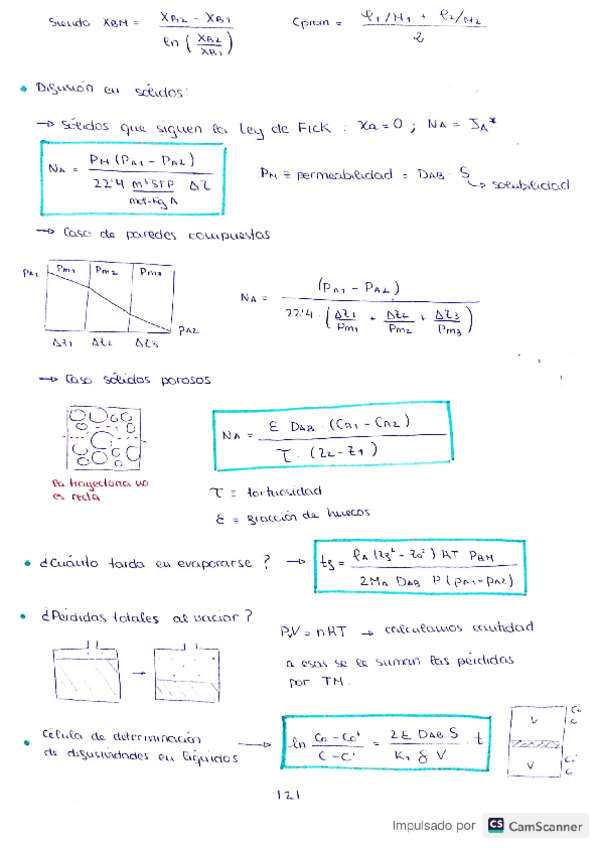 Siendo XBM = (XB2 - XB1) / ln (XB2/XB1)    Cprom = (ρ1/M1 + ρ2/M2) / 2
• Difusión en sólidos:
→ Sólidos que siguen la Ley de Fick : Xa = 0 ; NA = JA*
NA = PM (PA1 - PA2) / (22'4 m³STP/mol·kg A Δz)    PM = permeabilidad = DAB · S → solubilidad
→ Caso de paredes compuestas
PA1 Pm1 Pm2 Pm3 PA2
Δz1 Δz2 Δz3
NA = (PA1 - PA2) / 22'4 · (Δz1/Pm1 + Δz2/Pm2 + Δz3/Pm3)
→ Caso sólidos porosos
NA = ε DAB · (CA1 - CA2) / τ · (z2 - z1)
la trayectoria no
es recta
τ = tortuosidad
ε = fracción de huecos
• ¿Cuánto tarda en evaporarse? → tf = ρA (zf² - z0²) RT PBM / 2MA DAB P (PA1 - PA2)
• ¿Pérdidas totales al vaciar?
PV = nRT → calculamos cantidad
a esas se le suman las pérdidas
por TM.
• Célula de determinación
de difusividades en líquidos
→ ln (C0 - C0')/(C - C') = 2ε DAB S / K1 δ V · t
V C0 C
V C0' C
121
Impulsado por CS CamScanner